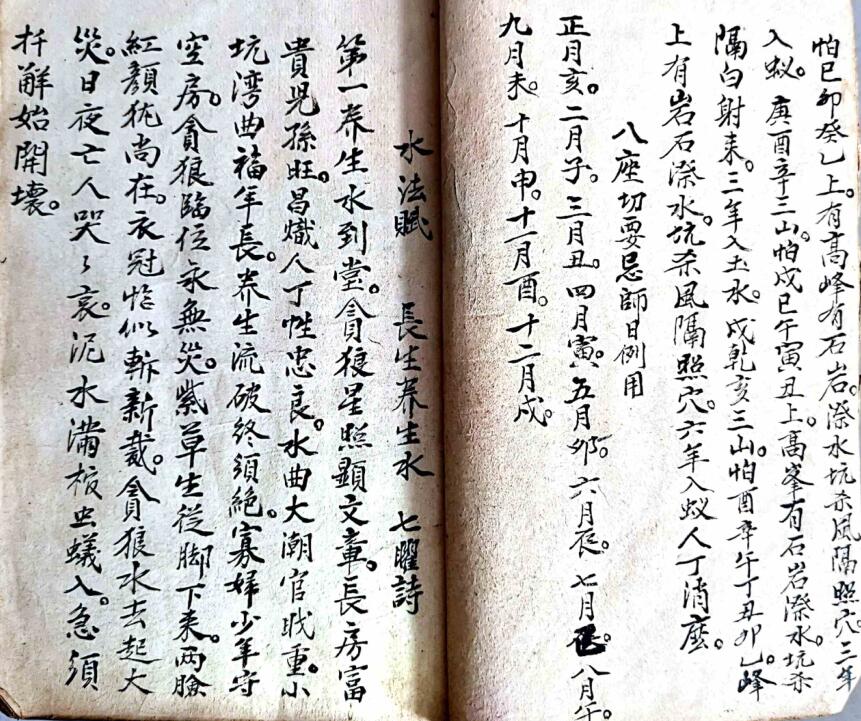 怕巳卯癸乙上。有高峰有石岩。漈水坑杀風隔照穴。三年
入蚁。庚酉辛三山。怕戌巳午寅丑上。高峯有石岩漈水。坑杀
隔白射来。三年入土水。戌乾亥三山。怕酉辛午丁丑卯乙峰
上有岩石漈水。坑杀風隔照穴。六年入蚁人丁消㡳。
八座切要忌師日例用
正月亥。二月子。三月丑。四月寅。五月卯。六月辰。七月巳。八月午。
九月未。十月申。十一月酉。十二月戌。
水法賦 長生养生水 七曜詩
第一养生水到堂。貪狼星照顕文章。長房富
貴児孫旺。昌熾人丁性忠良。水曲大潮官戝重。小
坑湾曲福年長。养生流破终須絶。寡婦少年守
空房。貪狼臨位永無災。紫草生從脚下来。两臉
紅顔犹尚在。衣冠恰似斬新裁。貪狼水去起大
災。日夜亡人哭々哀。泥水滿棺虫蟻入。急須
扦觧始開壊。